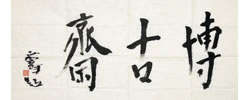 博古齋